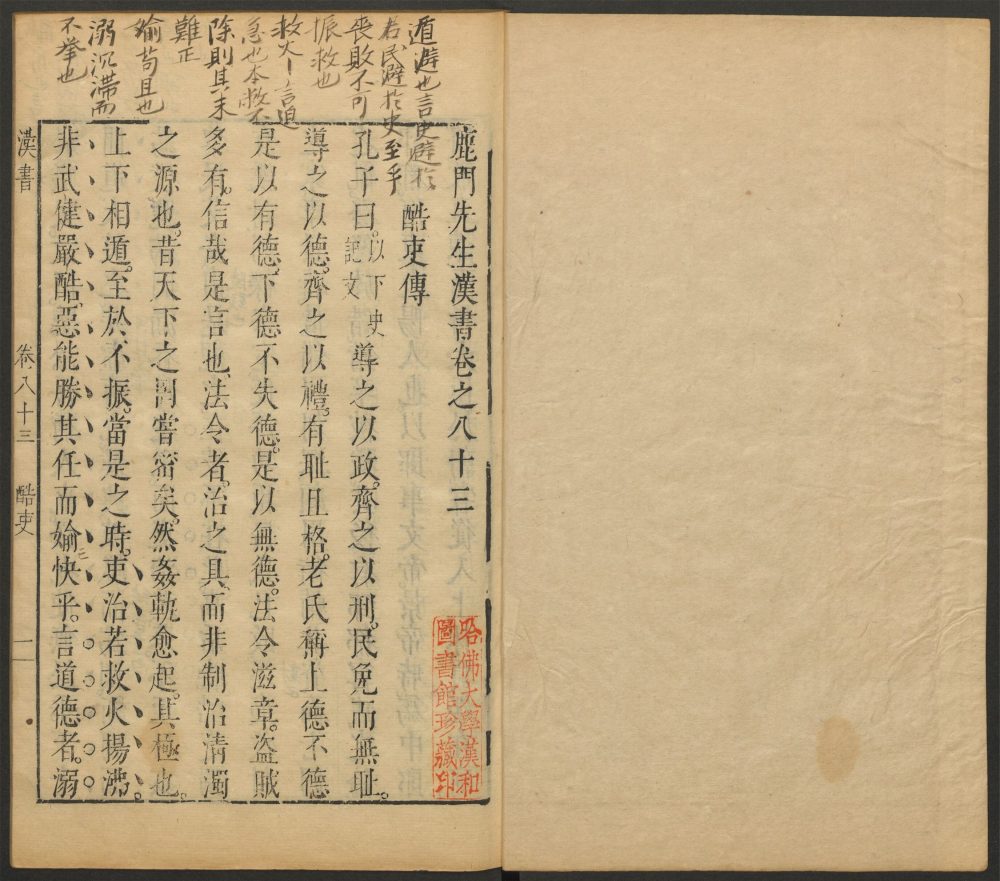 遁避也言吏避於
君民避於吏至乎
喪敗不可
振救也
救火丨言迫
急也本救不
除則其末
難正
媮苟且也
溺沉滯而
不舉也
鹿門先生漢書卷之八十三
酷吏傳
孔子曰以下史記文導之以政齊之以刑民免而無耻
導之以德齊之以禮有耻且格老氏稱上德不德
是以有德下德不失德是以無德法令滋章盗賊
多有信哉是言也法令者治之具而非制治清濁
之源也昔天下之罔嘗密矣然姦軌愈起其極也
上下相遁至於不振當是之時吏治若救火揚沸
非武健嚴酷惡能勝其任而媮快乎言道德者溺
漢書 卷八十三 酷吏 一
哈佛大學漢和
圖書館珍藏印